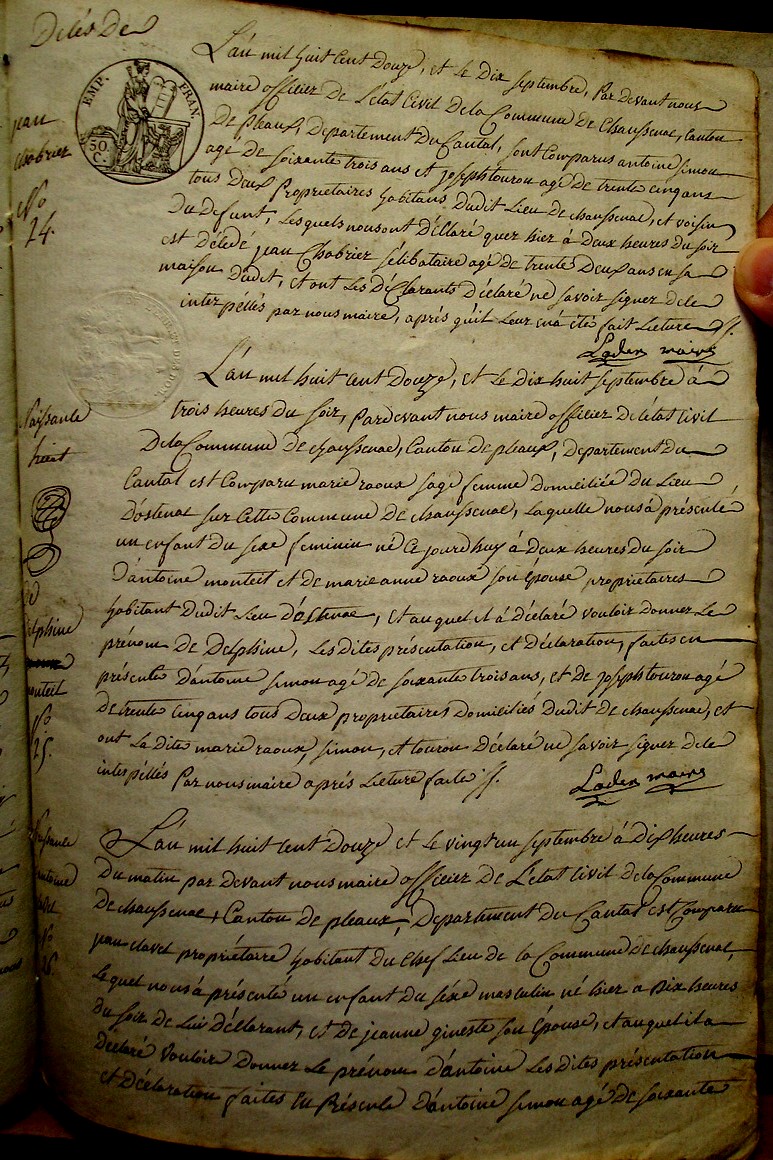 Décès De
jean
chabrier
No
24.
EMP. FRAN.
50 C.
L'an mil huit Cent Douze, et le Dix Septembre, Par devant nous
maire officier De L'état Civil De la Commune De Chaussenac, Canton
De pleaux, Département Du Cantal, sont Comparus antoine simon
agé De soixante trois ans et joseph touron agé De trente cinq ans
tous Deux Proprietaires habitans Dudit Lieu De chaussenac, et voisin
Du Defunt, Lesquels nous ont Déclaré quer hier à Deux heures Du soir
est Décédé jean Chabrier sélibataire agé De trente Deux ans en sa
maison Dudit, et ont Les Déclarants Déclaré ne savoir signer De le
interpellés par nous maire, aprés qu'il Leur en a été fait Lecture //.
Laden maire
Naissance
L'an mil huit Cent Douze, et Le Dix huit septembre à
trois heures Du soir, Pardevant nous maire officier De l'état Civil
De la Commune De chaussenac, Canton De pleaux, Departement Du
Cantal est Comparu marie raoux sage femme Domiciliée Du Lieu
D'ostenac sur Cette Commune De chaussenac, Laquelle nous à présenté
un enfant Du sexe feminin né Ce jourd'huy à Deux heures Du soir
D'antoine monteil et De marie anne raoux son épouse propriétaires
habitant Dudit Lieu D'ostenac, et auquel il à Déclaré vouloir Donner Le
prénom De Delphine, Les Dites présentation, et Déclaration, faites en
présence D'antoine simon agé De soixante trois ans, et De joseph touron agé
De trente Cinq ans tous Deux propriétaires Domiciliés Dudit De chaussenac, et
ont La Dite marie raoux, simon, et touron Déclaré ne savoir signer De le
interpellés Par nous maire aprés Lecture faite //.
Laden maire
De
delphine
monteil
No
25.
Naissance
antoine
No
26.
L'an mil huit Cent Douze et Le vingt un septembre à Dix heures
Du matin par devant nous maire officier De L'état Civil De la Commune
De chaussenac, Canton De pleaux, Département Du Cantal est Comparu
jean clavet propriétaire habitant Du Chef Lieu De la Commune De chaussenac,
Lequel nous à présenté un enfant Du séxe masculin né hier a Dix heures
Du soir De Lui Déclarant, et De jeanne gineste son Epouse, et auquel il a
Déclaré vouloir Donner Le prénom D'antoine Les Dites présentation
et Déclaration faites En Présence D'antoine simon agé De soixante